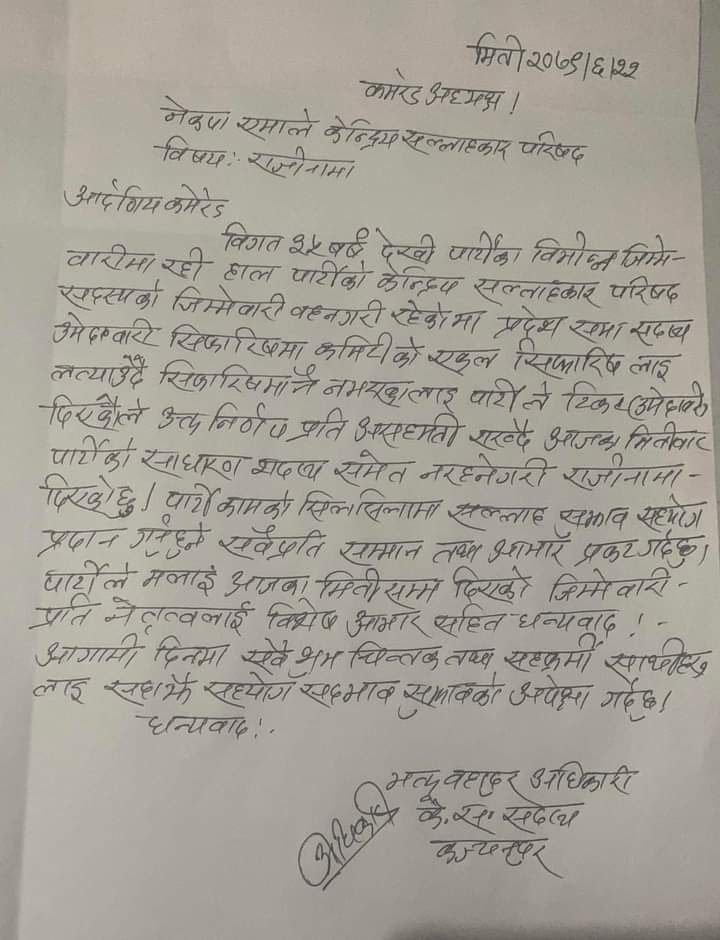 मिती २०७९/६/२२
कमरेड अध्यक्ष !
नेकपा एमाले केन्द्रिय सल्लाहकार परिषद
विषय:- राजीनामा
आदरणिय कमरेड
विगत ३५ बर्ष देखी पार्टीका विभीन्न जिम्मे-
वारीमा रही हाल पार्टीको केन्द्रिय सल्लाहकार परिषद
सदस्यको जिम्मेवारी वहनगरी रहेकोमा प्रदेश सभा सदस्य
उमेदवारी सिफारिषमा कमिटीको एकल सिफारिष लाइ
लत्याउदै सिफारिषमानै नभएकालाइ पार्टी ले टिकट
दिएकोले उक्त निर्णय प्रति असहमती राख्दै आजका मितीबाट
पार्टीको साधारण सदस्य समेत नरहनेगरी राजीनामा-
दिएकोछु। पार्टी कामको सिलसिलामा सल्लाह सुझाव सहयोग
प्रदान गर्नुहुने सवैप्रति सम्मान तथा आभार प्रकट गर्दछु।
पार्टीले मलाई आजका मितीसम्म दिएको जिम्मेवारी-
प्रति नेतृत्वलाई विशेष आभार सहित धन्यवाद !-
आगामी दिनमा सवै शुभ चिन्तक तथा सहकर्मी साथीहरु
लाइ सदाझै सहयोग सदभाव सुझावको अपेक्षा गर्दछु।
धन्यवाद !.
वहादुर अधिकारी
के.स. सदस्य
कञ्चनपुर